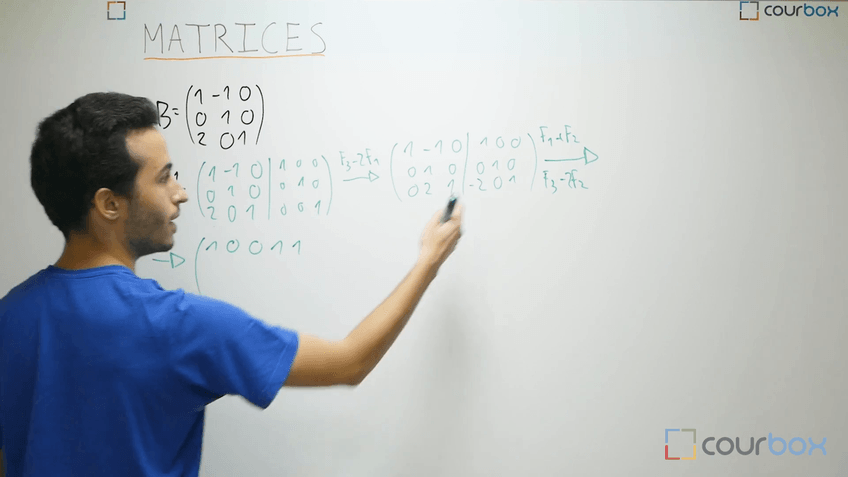 courbox
MATRICES
B= (1 -1 0
0 1 0
2 0 1)
(1 -1 0 | 1 0 0
0 1 0 | 0 1 0
2 0 1 | 0 0 1)
F3-2F1
(1 -1 0 | 1 0 0
0 1 0 | 0 1 0
0 2 1 | -2 0 1)
F1+F2
F3-2F2
(1 0 0 1 1
courbox